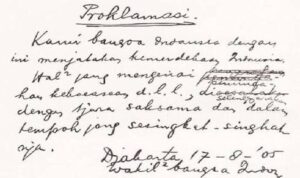 Proklamasi.
Kami bangsa Indonesia dengan
ini menjatakan kemerdekaan Indonesia.
Hal² jang mengenai
kekoeasaan d.l.l., diselenggarakan
dengan tjara saksama dan dalam
tempoh jang sesingkat-singkat
nja.
Djakarta 17-8-'05
Wakil² bangsa Indon